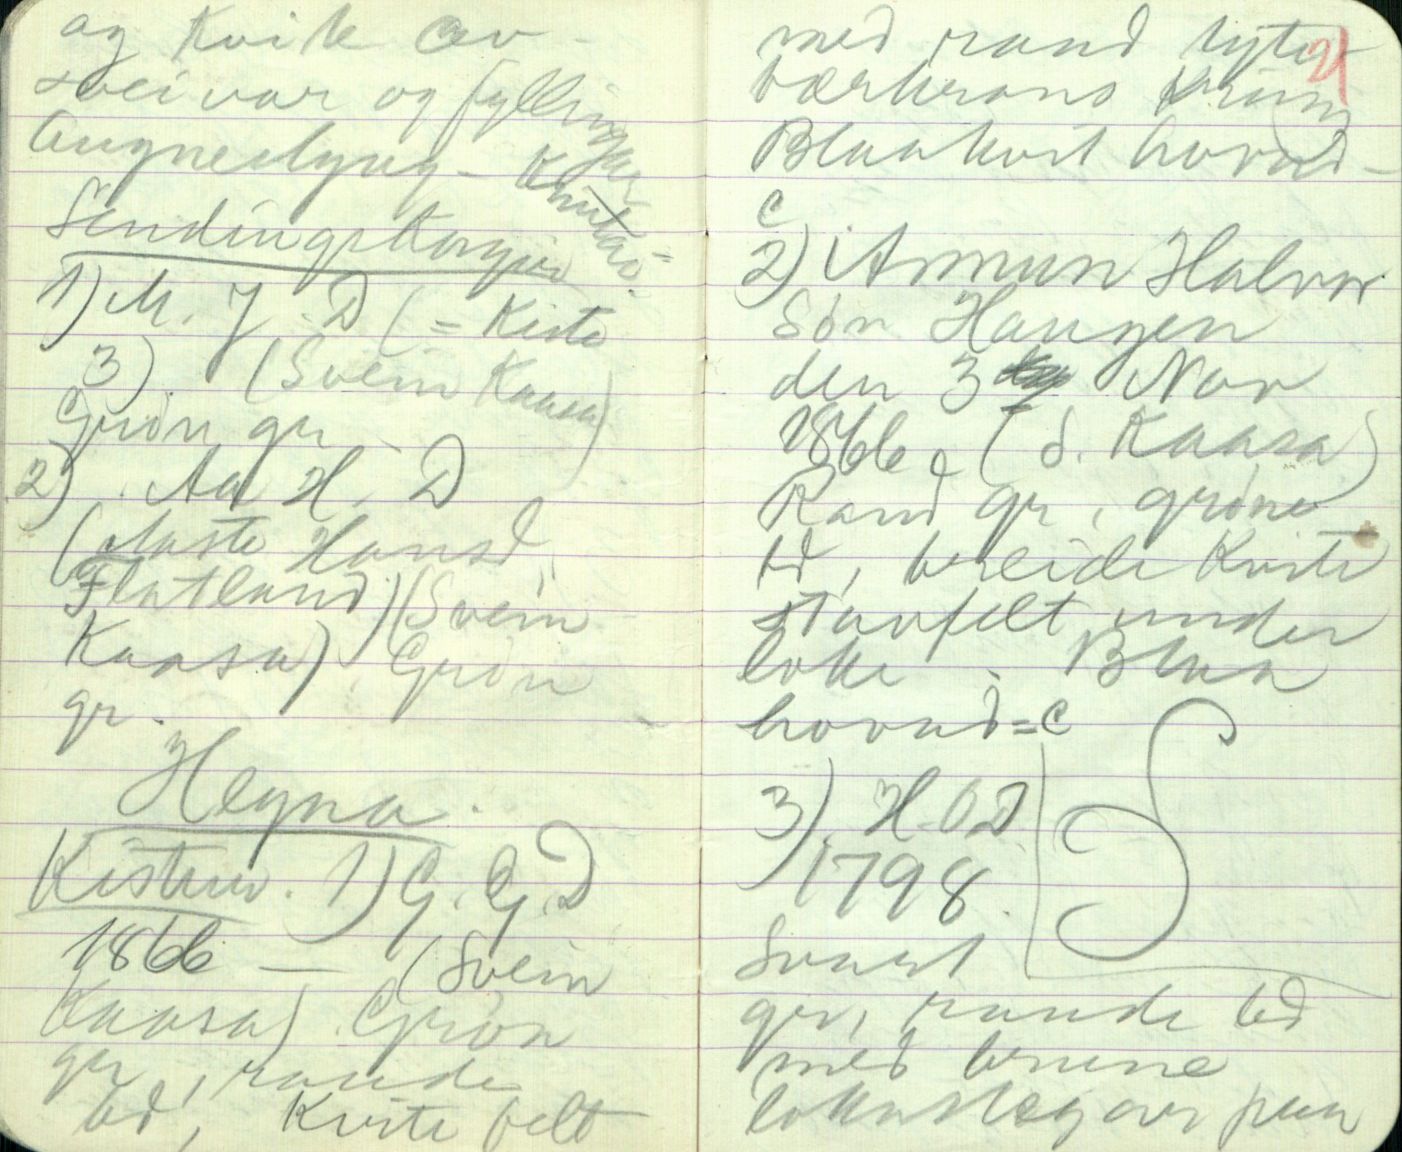 og kvite av-
svei var og fyllingar
Augneslyng - Knutar.
Sendingskorgir
1) M. J. D (= Kiste
3) (Svein Kaasa)
Grøn gr
2) Aa H. D
(Aaste Hansd.
Flatland) (Svein
Kaasa) Grøn
gr.
Heyna.
Kistur. 1) G. G. D
1866 — (Svein
Kaasa) Grøn
gr, raude
bd, Kvite felt
21
med raud
bærkrans Kring
Blaakvit hovud-
c
2) Amun Halvor
Søn Haugen
den 3 Nov
1866, (S. Kaasa)
Raud gr, grøne
bd, breide Kvite
stavfelt under
loke. Blaa
hovud = c
3) H O D
1798.
S
Svart
gr, raude bd
med brune